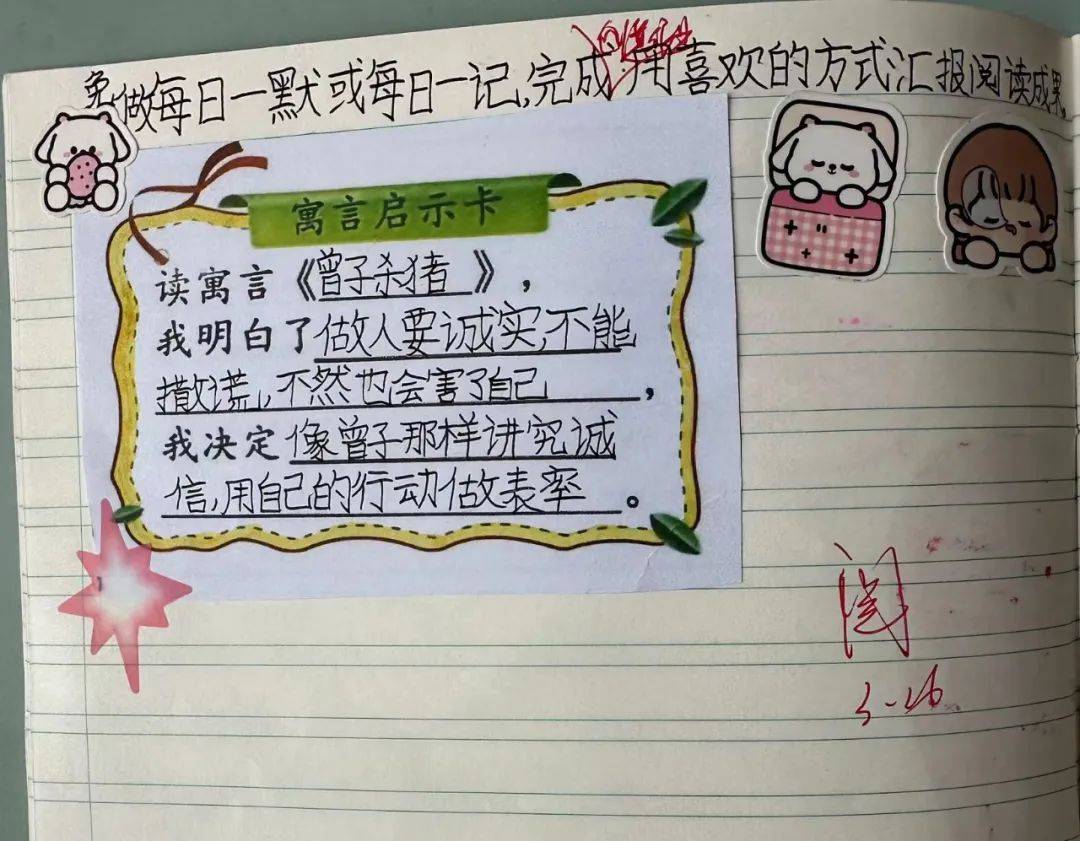 免做每日一默或每日一记,完成用喜欢的方式汇报阅读成果。
寓言启示卡
读寓言《曾子杀猪》,
我明白了做人要诚实,不能
撒谎,不然也会害了自己,
我决定像曾子那样讲究诚
信,用自己的行动做表率。
阅